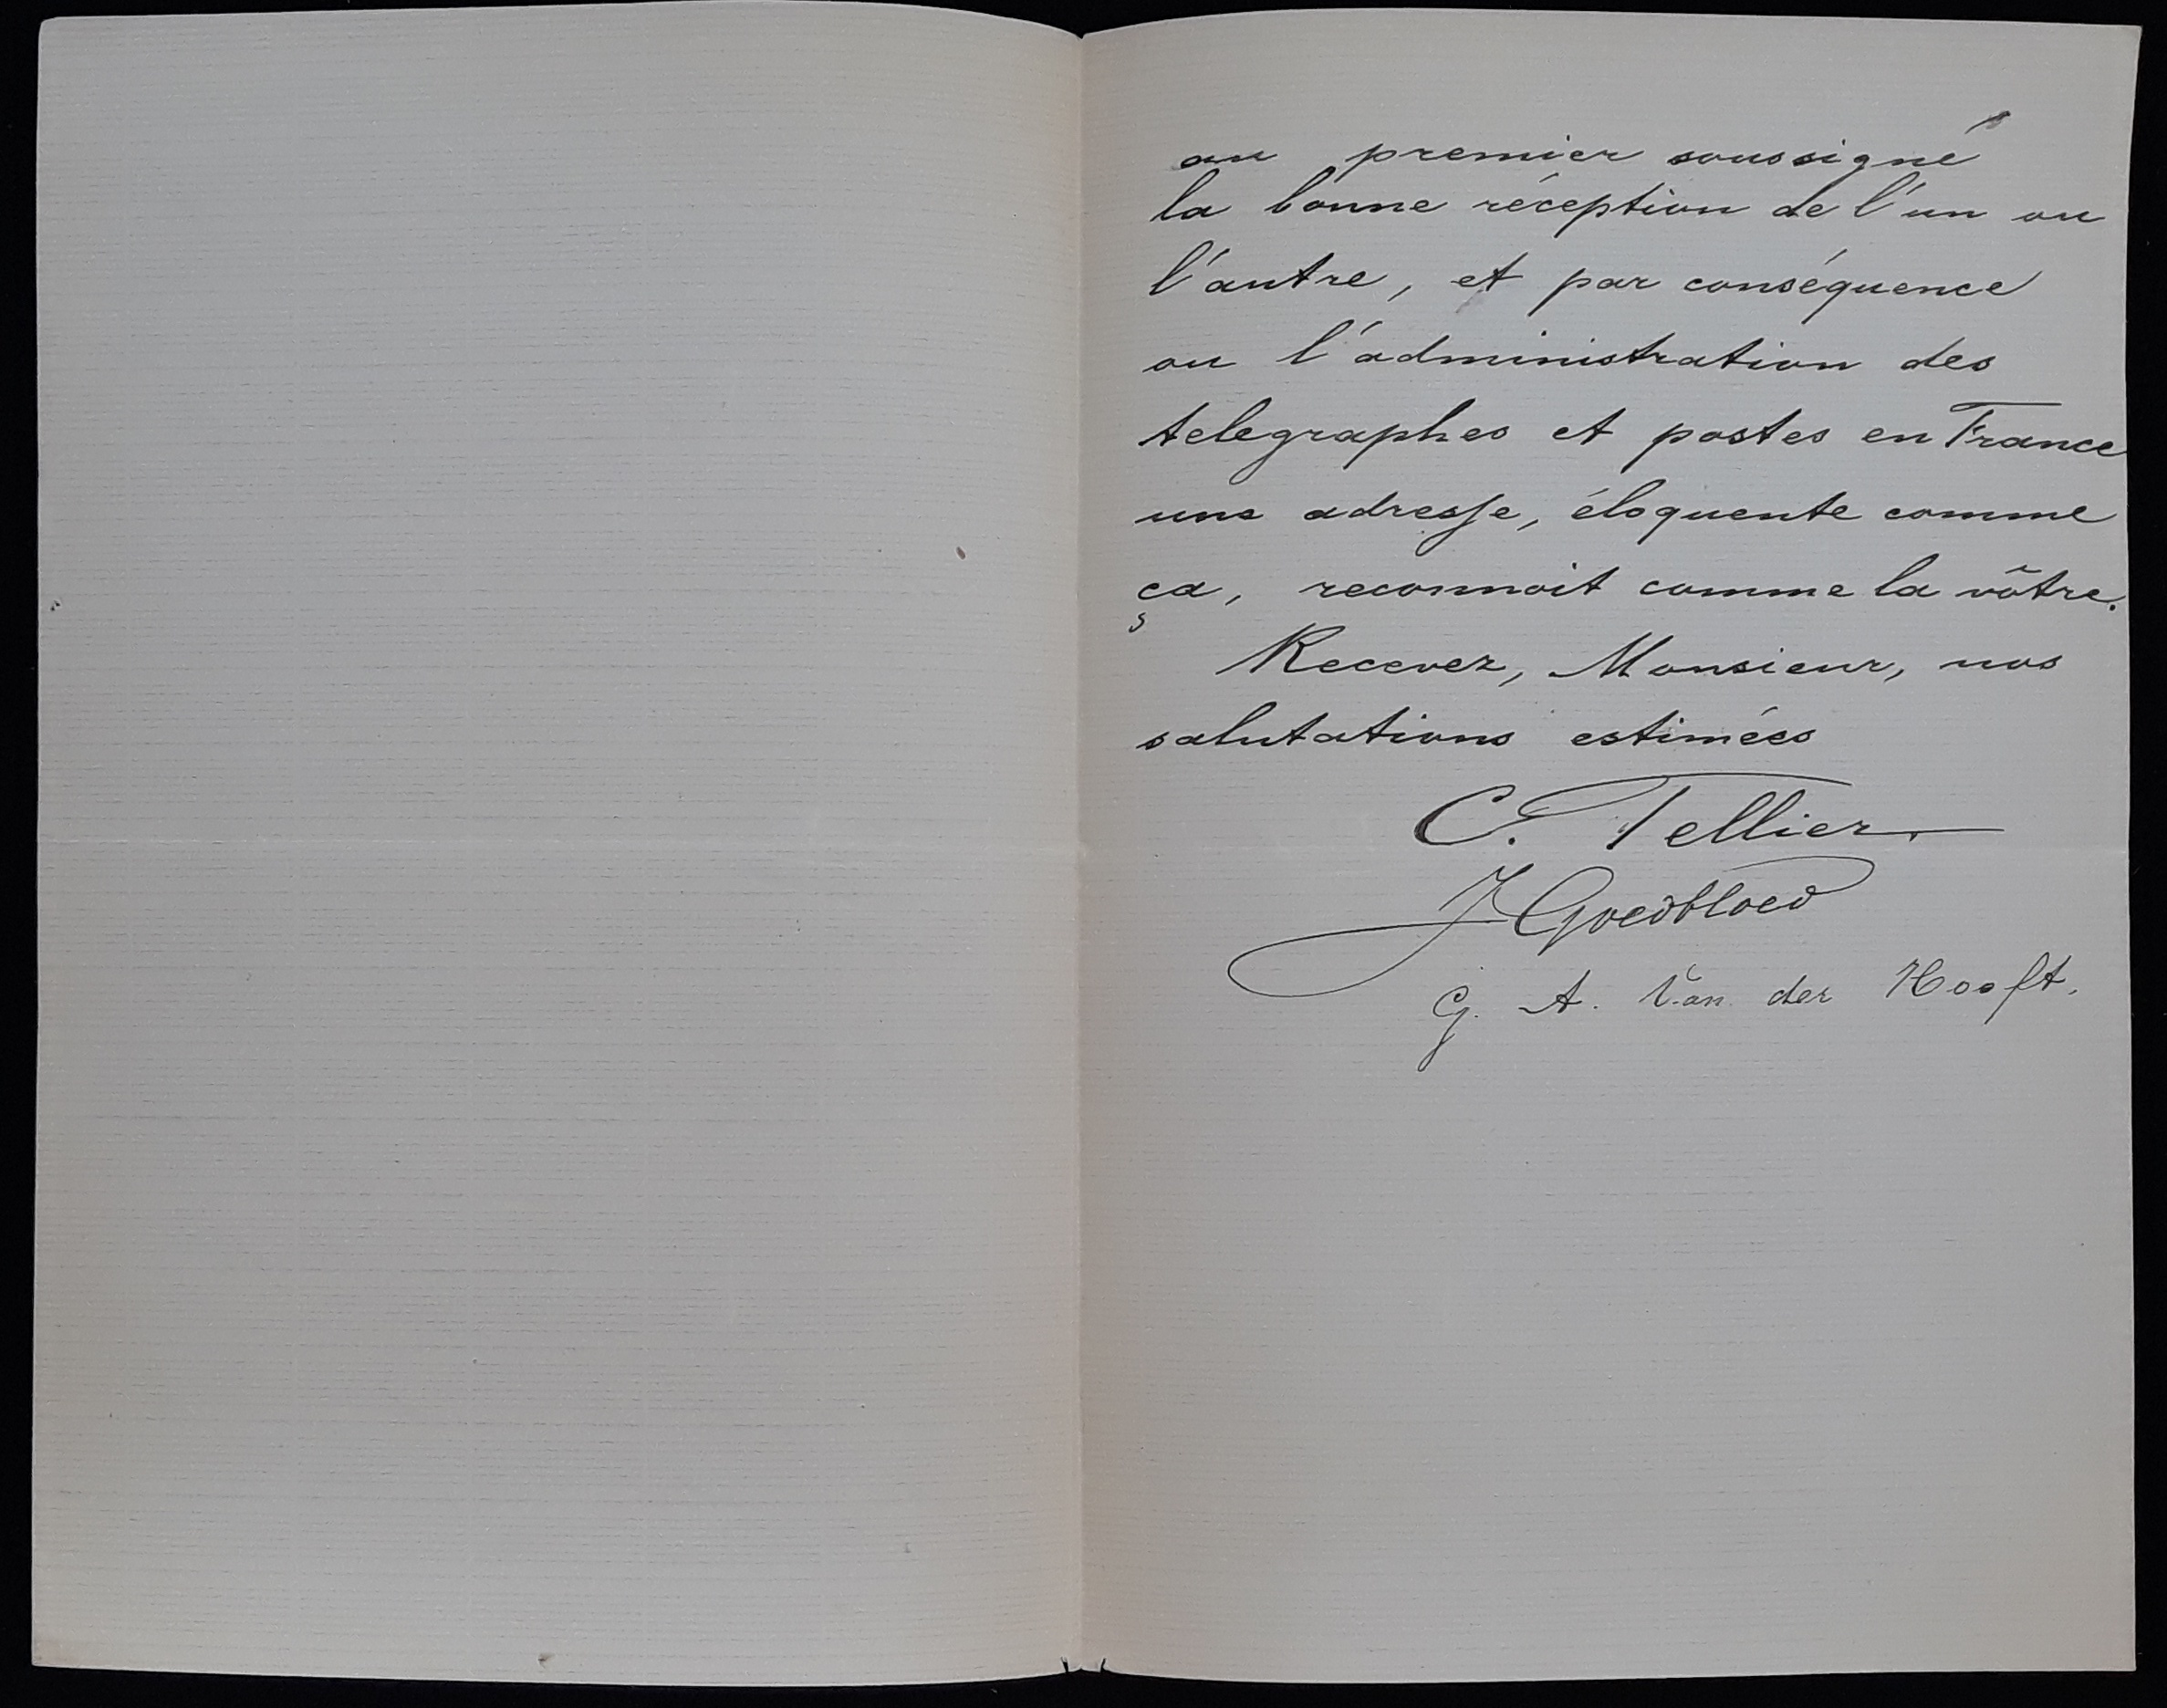 au premier soussigné
la bonne réception de l'un ou
l'autre, et par conséquence
ou l'administration des
telegraphes et postes en France
une adresse, éloquente comme
ça, reconnoit comme la vôtre.
Recevez, Monsieur, nos
salutations estimées
C. Tellier
J Goedbloed
G. A. Van der Hooft.